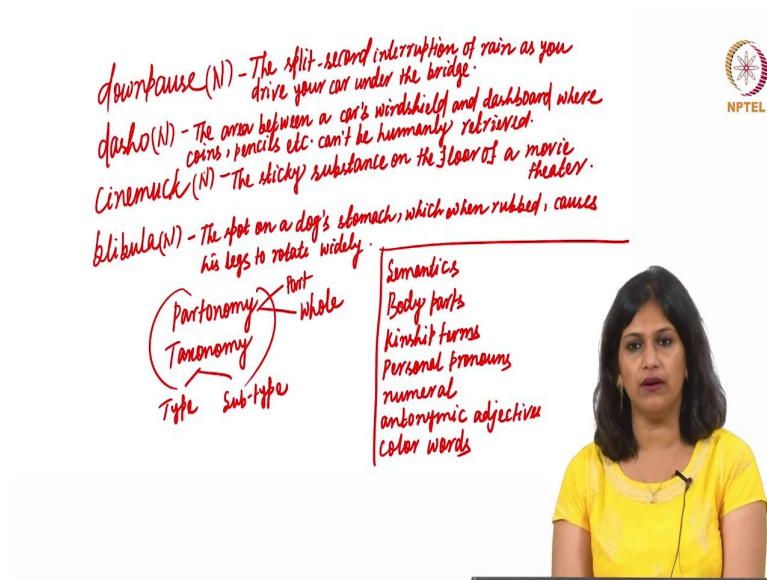 downpause (N) - The split-second interruption of rain as you
drive your car under the bridge.
dasho (N) - The area between a car's windshield and dashboard where
coins, pencils etc. can't be humanly retrieved.
Cinemuck (N) - The sticky substance on the floor of a movie
theater.
blibula (N) - The spot on a dog's stomach, which when rubbed, causes
his legs to rotate widely.
Partonomy
Part
Whole
Taxonomy
Type
Sub-type
Semantics
Body parts
Kinship terms
Personal pronouns
numeral
antonymic adjectives
color words
NPTEL